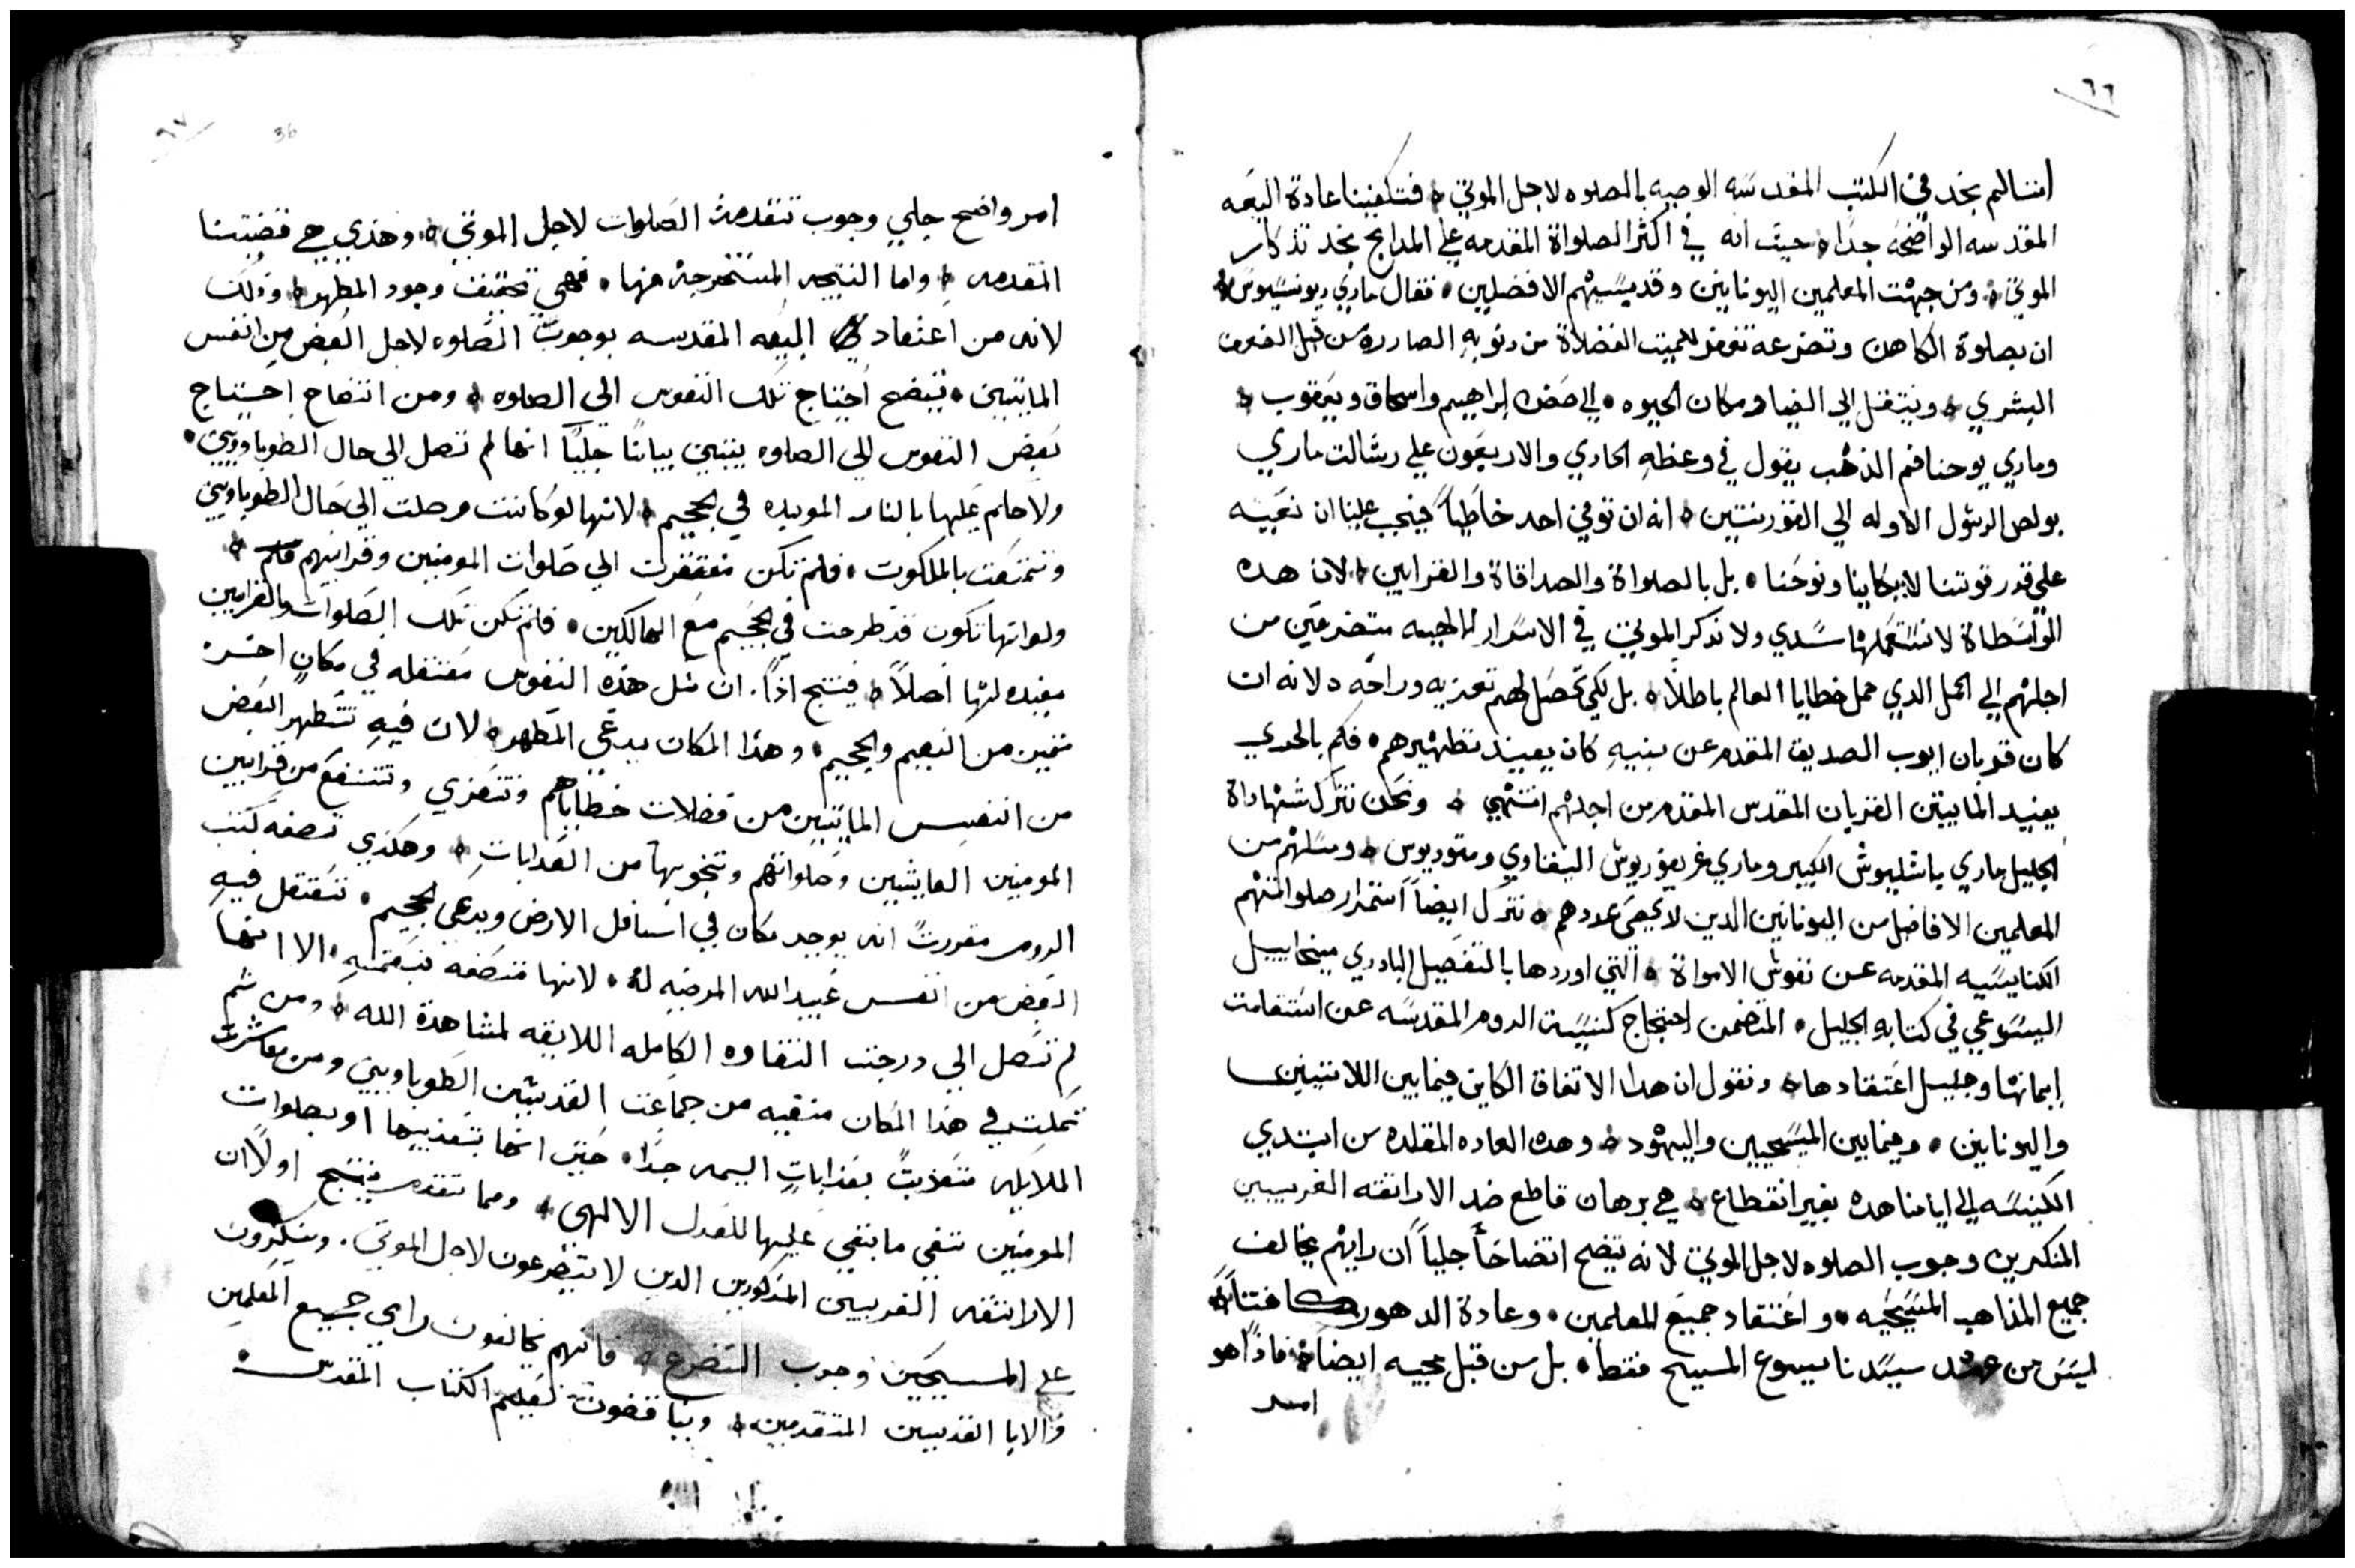 ٦٦
اننا لم نجد في الكتب المقدسه الوصيه بالصلوه لاجل الموتي فتكفينا عادة البيعه
المقدسه الواضحه جداً حيث انه في اكثر الصلواة المقدمه علي المدابح نجد تذكار
الموتي ومن جهت المعلمين اليونانيين وقديسيهم الافضلين فقال ماري ديونسيوس
ان بصلوة الكاهن وتضرعه تغفر للميت الفضلاة من دنوبه الصادره من قبل الضعف
البشري وينتقل الي الضيا ومكان الحيوه الي حضن ابراهيم واسحاق ويعقوب
وماري يوحنا فم الذهب يقول في وعظه الحادي والاربعون علي رسالت ماري
بولص الرسول الاوله الي القورنتيين انه ان توفي احد خاطياً فيجب علينا ان نعينه
علي قدر قوتنا لا ببكاينا ونوحنا بل بالصلواة والصداقاة والقرابين لان هده
الواسطاة لا نستعملها سدي ولا ندكر الموتي في الاسرار الالهيه متضرعين من
اجلهم الي الحمل الدي حمل خطايا العالم باطلاً بل لكي تحصل لهم تعزيه وراحه لانه ان
كان قربان ايوب الصديق المقدم عن بنيه كان يفيد تطهيرهم فكم بالحري
يفيد المايتين القربان المقدس المقدم من اجلهم انتهي ونحن نترك شهاداة
الجليل ماري باسليوس الكبير وماري غريغوريوس الينفاوي ومتوديوس ومتلهم من
المعلمين الافاضل من اليونانيين الدين لا يحصي عددهم نترك ايضاً استمرار صلواتهم
الكنايسيه المقدمه عن نفوس الامواة التي اوردها بالتفصيل البادري ميخاييل
اليسوعي في كتابه الجليل المتضمن احتجاج كنيسة الروم المقدسه عن استقامت
ايمانها وجليل اعتقادها ونقول ان هدا الاتفاق الكاين فيما بين اللاتينيين
واليونانين وفيما بين المسيحيين واليهود وهده العاده المقلده من ابتدي
الكنيسه الي ايامنا هده بغير انقطاع هي برهان قاطع ضد الاراتقه الغريبيين
المنكرين وجوب الصلوه لاجل الموتي لانه يتضح اتضاحاً جلياً ان رايهم يخالف
جميع المذاهب المسيحيه واعتقاد جميع المعلمين وعادة الدهور كافتاً
ليس من عهد سيدنا يسوع المسيح فقط بل من قبل مجيه ايضاً فاذاً هو
امر
٦٧
36
امر واضح جلي وجوب تقدمة الصلوات لاجل الموتي وهذي هي قضيتنا
المقدمه واما النتيجه المستخرجة منها فهي تحقيق وجود المطهر وذلك
لانه من اعتقاد البيعه المقدسه بوجوب الصلوه لاجل البعض من انفس
المايتيين يتضح احتياج تلك النفوس الي الصلوه ومن اتضاح احتياج
بعض النفوس الي الصلوه يتبين بياناً جلياً انها لم تصل الي حال الطوباويين
ولا حكم عليها بالنار الموبده في الجحيم لانها لو كانت وصلت الي حال الطوباويين
وتمتعت بالملكوت فلم تكن مفتقرت الي صلوات المومنين وقرابينهم
ولو انها تكون قد طرحت في الجحيم مع الهالكين فلم تكن تلك الصلوات والقرابين
مفيده لها اصلاً فينتج اذاً ان مثل هذه النفوس معتقله في مكان اخر
متميز من النعيم والجحيم وهذا المكان يدعي المطهر لان فيه تتطهر البعض
من انفس المايتيين من فضلات خطاياهم وتتعزي وتنتفع من قرابين
المومنين العايشين وصلواتهم وتنجو بها من العذابات وهكذي تصفه كتب
الروم مقررتً انه يوجد مكان في اسافل الارض ويدعي الجحيم تعتقل فيه
البعض من انفس عبيد الله المرضيه له لانها متصفه بنعمته الا انها
لم تصل الي درجت النقاوه الكامله اللايقه لمشاهدة الله ومن ثم
تمكث في هذا المكان منفيه من جماعت القديسين الطوباويين ومن معاشرت
الملايكه متعذبتً بعذاباتٍ اليمه جداً حتي انها بتعذيبها او بصلوات
المومنين تفي ما بقي عليها للعدل الالهي ومما تقدم ينتج اولاً ان
الاراتقه الغربيين المذكورين الدين لا يتضرعون لاجل الموتي وينكرون
علي المسيحيين وجوب التضرع فانهم يخالفون راي جميع المعلمين
والابا القديسين المتقدمين ويناقضون تعليم الكتاب المقدس